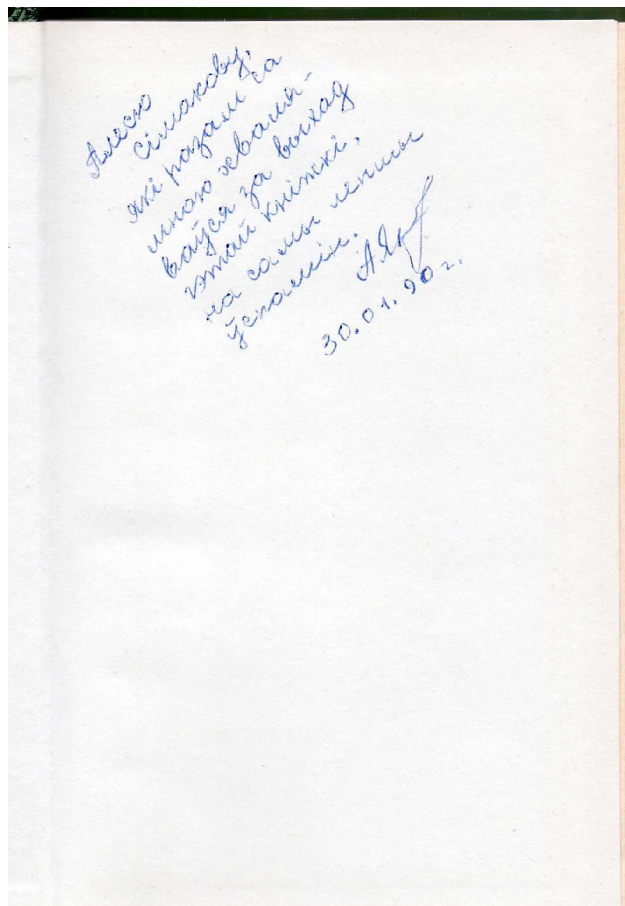 Алесю
Сімакову,
які разам са
мною хваля-
ваўся за выхад
гэтай кніжкі,
на самы лепшы
ўспамін.
30.01.90 г.